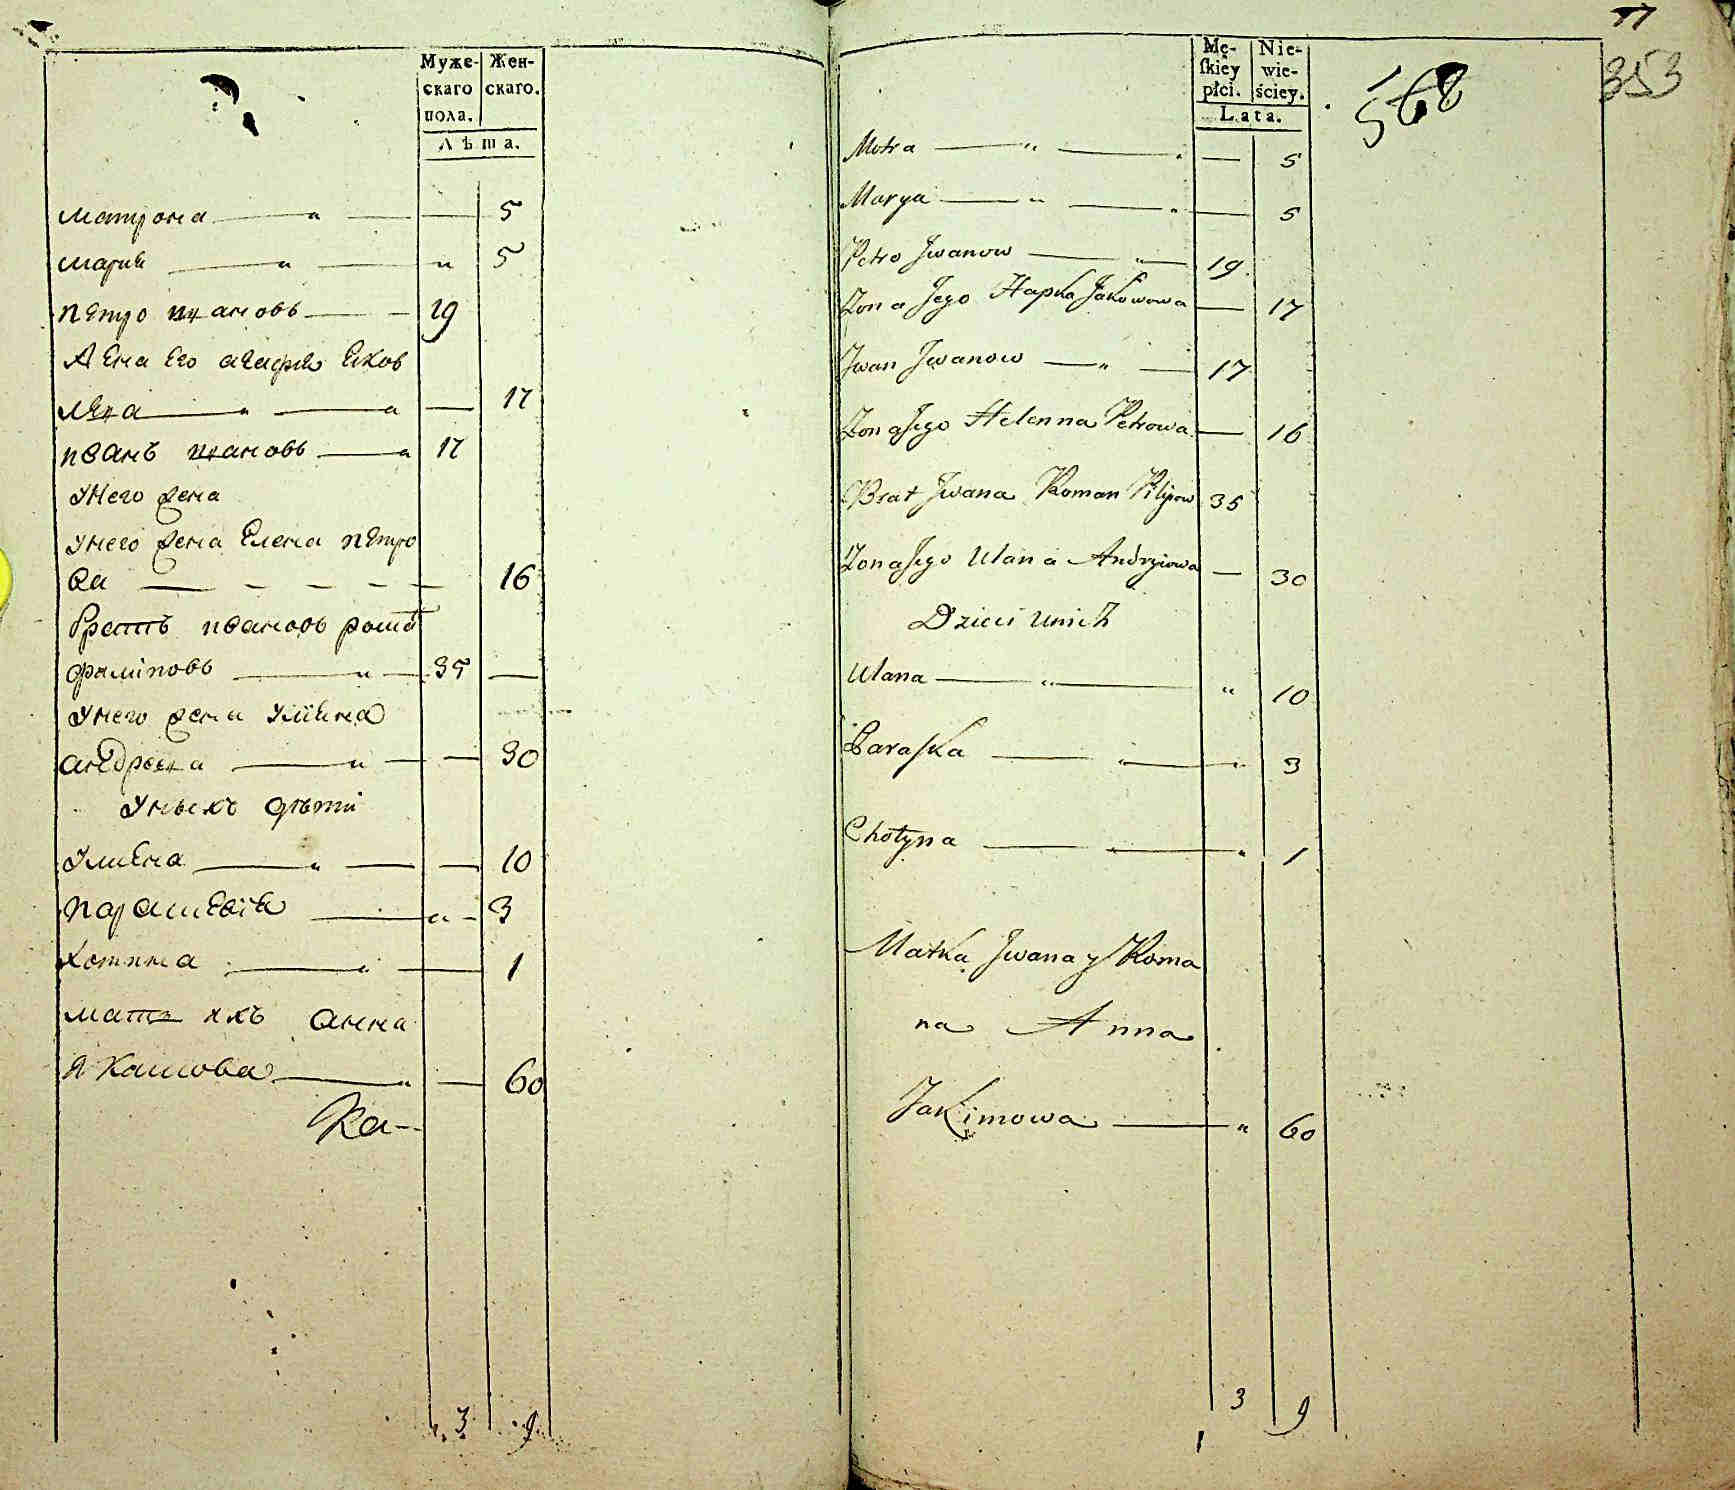 Муже- Жен-
скаго скаго.
пола.
Лѣта.
Матрона — " — — 5
Мария — " — " 5
Петро Ивановъ — — 19
Жена Его агафия Яков
лева — " — " — 17
Иванъ Ивановъ — " 17
Унего жена
Унего жена Елена Петро
ва — — — — — 16
братъ Ивановъ рома
филиповъ — " — 35 —
Унего жена Улияна
андреева — " — — 30
Унихъ дѣти
Улияна — " — — 10
Параскевия — " — 3
Хотина — " — 1
мать ихъ анна
Якимова — " — 60
Ка-
3. 9.
77
353
568
Mę- Nie-
ſkiey wie-
płci. ściey.
Lata.
Motra — " — " — 5
Marya — " — " — 5
Petro Jwanow — " — 19
Zona Jego Hapka Jakowowa — 17
Jwan Jwanow — " — 17
Zona Jego Helenna Petrowa — 16
Brat Jwana Roman Pilipow 35
Zona Jego Ulana Andryiowa — 30
Dzieci Unich
Ulana — " — " 10
Paraſka — " — " 3
Chotyna — — " 1
Matka Jwana y Roma
na Anna
Jakimowa — " 60
3 9